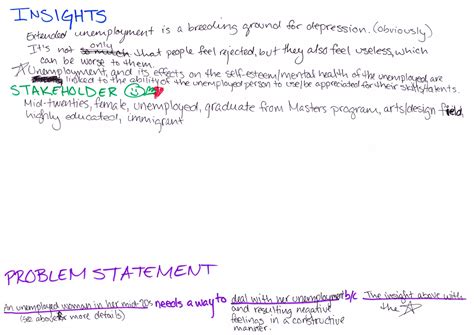 INSIGHTS
Extended unemployment is a breeding ground for depression. (obviously)
It's not only that people feel rejected, but they also feel useless, which
can be worse to them.
Unemployment, and its effects on the self-esteem/mental health of the unemployed, are
linked to the ability of the unemployed person to use/be appreciated for their skills/talents.
STAKEHOLDER
Mid-twenties, female, unemployed, graduate from Masters program, arts/design field,
highly educated, immigrant
PROBLEM STATEMENT
An unemployed woman in her mid-20s needs a way to deal with her unemployment b/c The insight above with
(see above for more details) and resulting negative the
feelings in a constructive
manner.